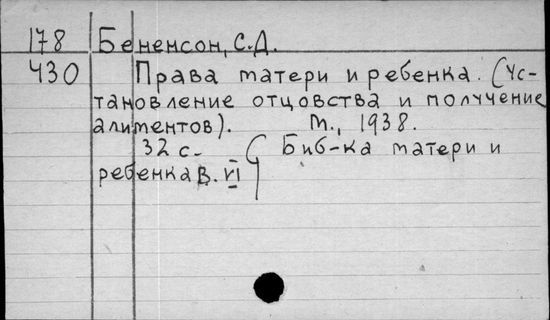 178 Бененсон, С.Д.
430 Права матери и ребенка. (Ус-
тановление отцовства и получение
алиментов). М., 1938.
32 с. (Биб-ка матери и
ребенка В. VI)